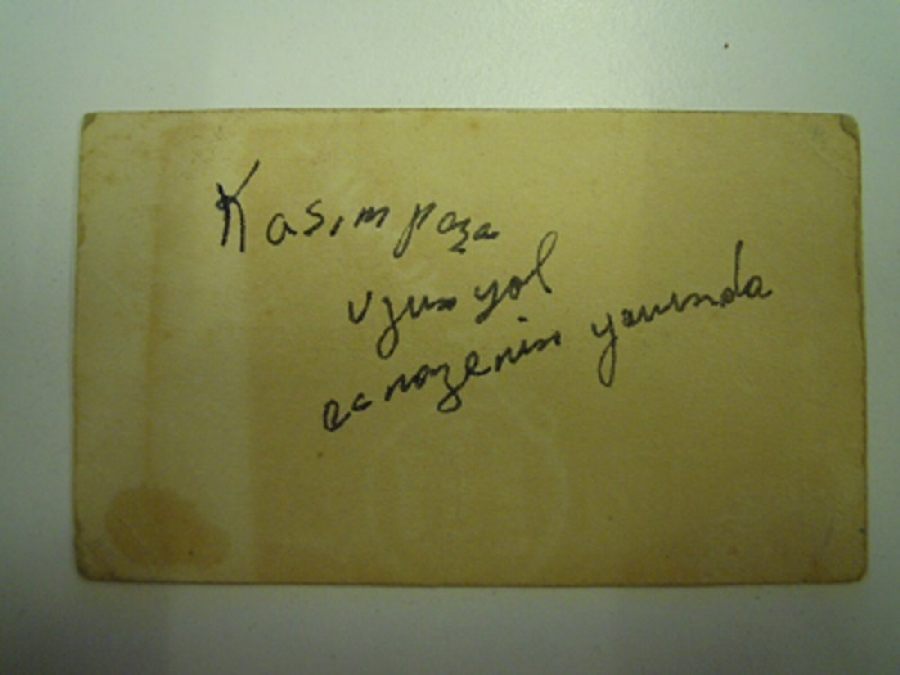 Kasımpaşa
uzun yol
eczanenin yanında